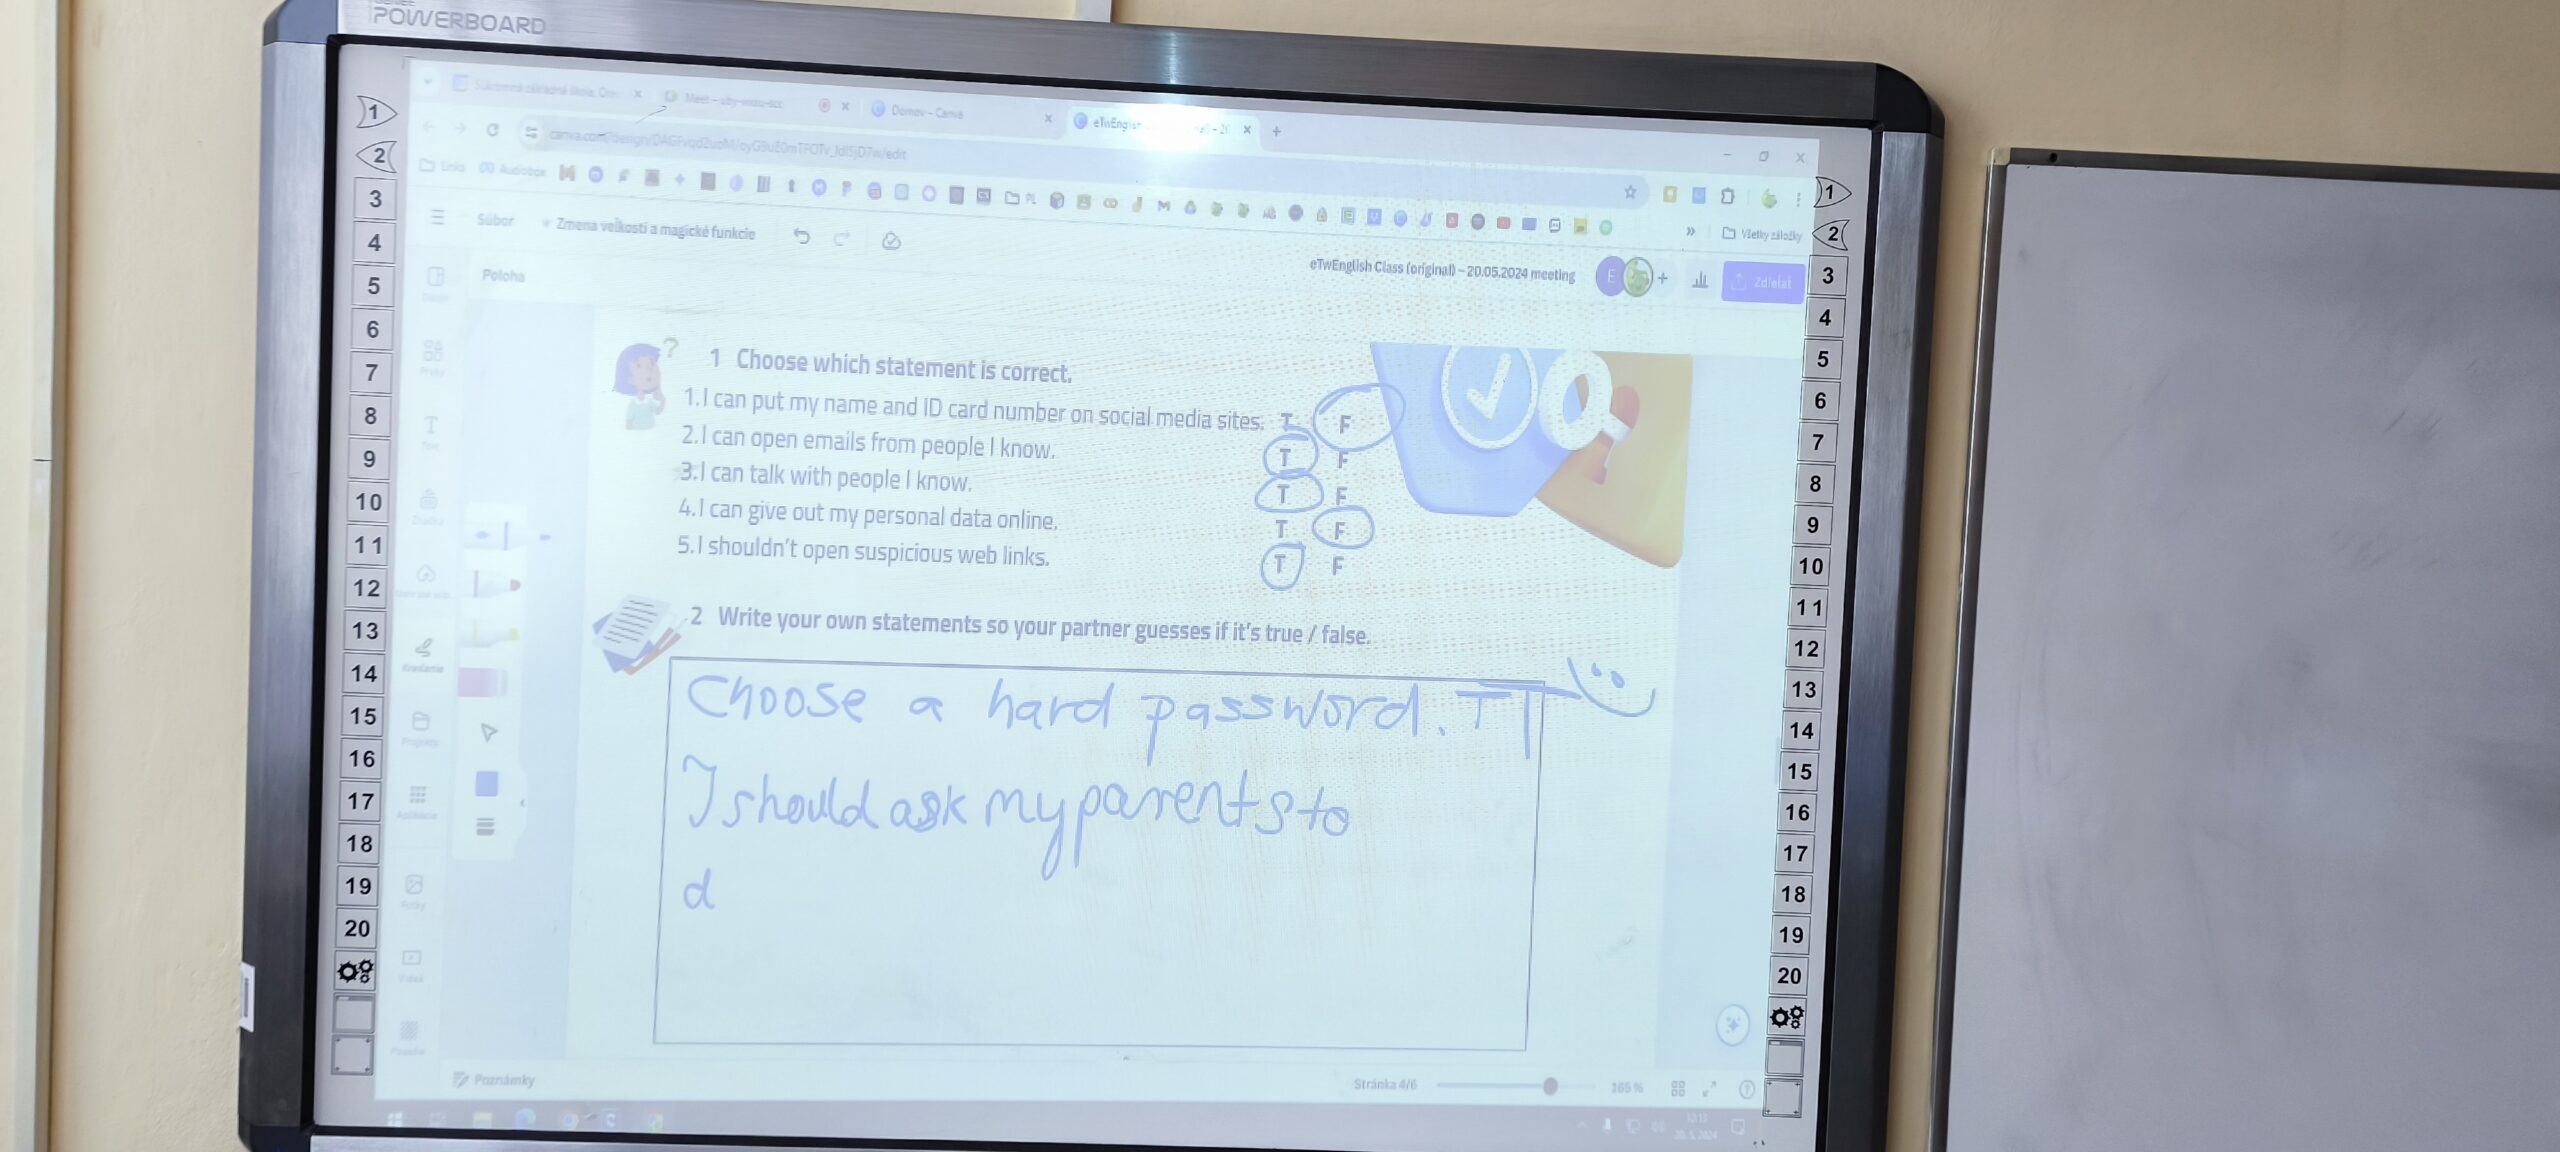 POWERBOARD
Meet – Domov – Canva
Links Audiobox PL Všetky záložky
Súbor Zmena veľkosti a magické funkcie
eTwEnglish Class (original) – 20.05.2024 meeting E + Zdieľať
Poloha
1 Choose which statement is correct.
1. I can put my name and ID card number on social media sites. T F
2. I can open emails from people I know. T F
3. I can talk with people I know. T F
4. I can give out my personal data online. T F
5. I shouldn't open suspicious web links. T F
2 Write your own statements so your partner guesses if it's true / false.
Choose a hard password. T T
I should ask my parents to
d
Text
Kreslenie
Projekty
Aplikácie
Fotky
Videá
Poznámky Stránka 4/6 165 %
12:13
20. 5. 2024
1
2
3
4
5
6
7
8
9
10
11
12
13
14
15
16
17
18
19
20
1
2
3
4
5
6
7
8
9
10
11
12
13
14
15
16
17
18
19
20